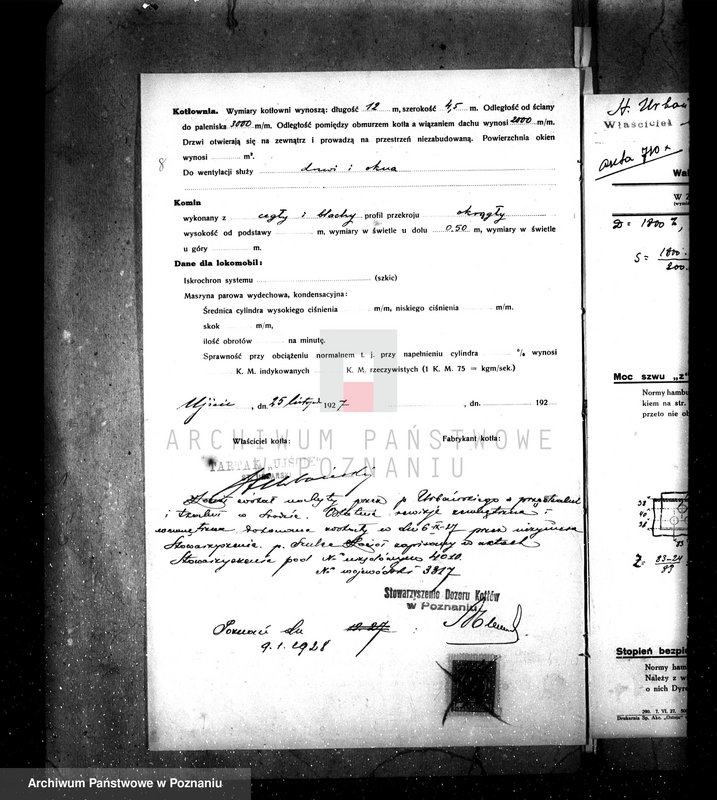 Kotłownia. Wymiary kotłowni wynoszą: długość 12 m, szerokość 4,5 m. Odległość od ściany
do paleniska 3000 m/m. Odległość pomiędzy obmurzem kotła a wiązaniem dachu wynosi 2000 m/m.
Drzwi otwierają się na zewnątrz i prowadzą na przestrzeń niezabudowaną. Powierzchnia okien
wynosi m².
8
Do wentylacji służy drzwi i okna
Komin
wykonany z cegły i blachy profil przekroju okrągły
wysokość od podstawy m, wymiary w świetle u dołu 0.50 m, wymiary w świetle
u góry m.
Dane dla lokomobil:
Iskrochron systemu (szkic)
Maszyna parowa wydechowa, kondensacyjna:
Średnica cylindra wysokiego ciśnienia m/m, niskiego ciśnienia m/m.
skok m/m,
ilość obrotów na minutę.
Sprawność przy obciążeniu normalnem t. j. przy napełnieniu cylindra % wynosi
K. M. indykowanych K. M. rzeczywistych (1 K. M. 75 = kgm/sek.)
Ujście, dn. 25 listopad 1927 , dn. 192
Właściciel kotła: Fabrykant kotła:
ARCHIWUM PAŃSTWOWE
W POZNANIU
TARTAK "UJŚCIE"
Kocioł został nabyty przez p. Urbańskiego
i
wewnętrzna dokonana w dn 6 przez inżyniera
Stowarzyszenia p. Kocioł zapisany w aktach
Stowarzyszenia pod Nr 4010
Nr wojewódzki 3817
Stowarzyszenie Dozoru Kotłów
w Poznaniu
Poznań dn
9.1.1928
Właściciel
Moc szwu „z"
Normy hambu
kiem na str.
przeto nie ob
Stopień bezpie
Normy ham
Należy z w
o nich Dyre
Archiwum Państwowe w Poznaniu